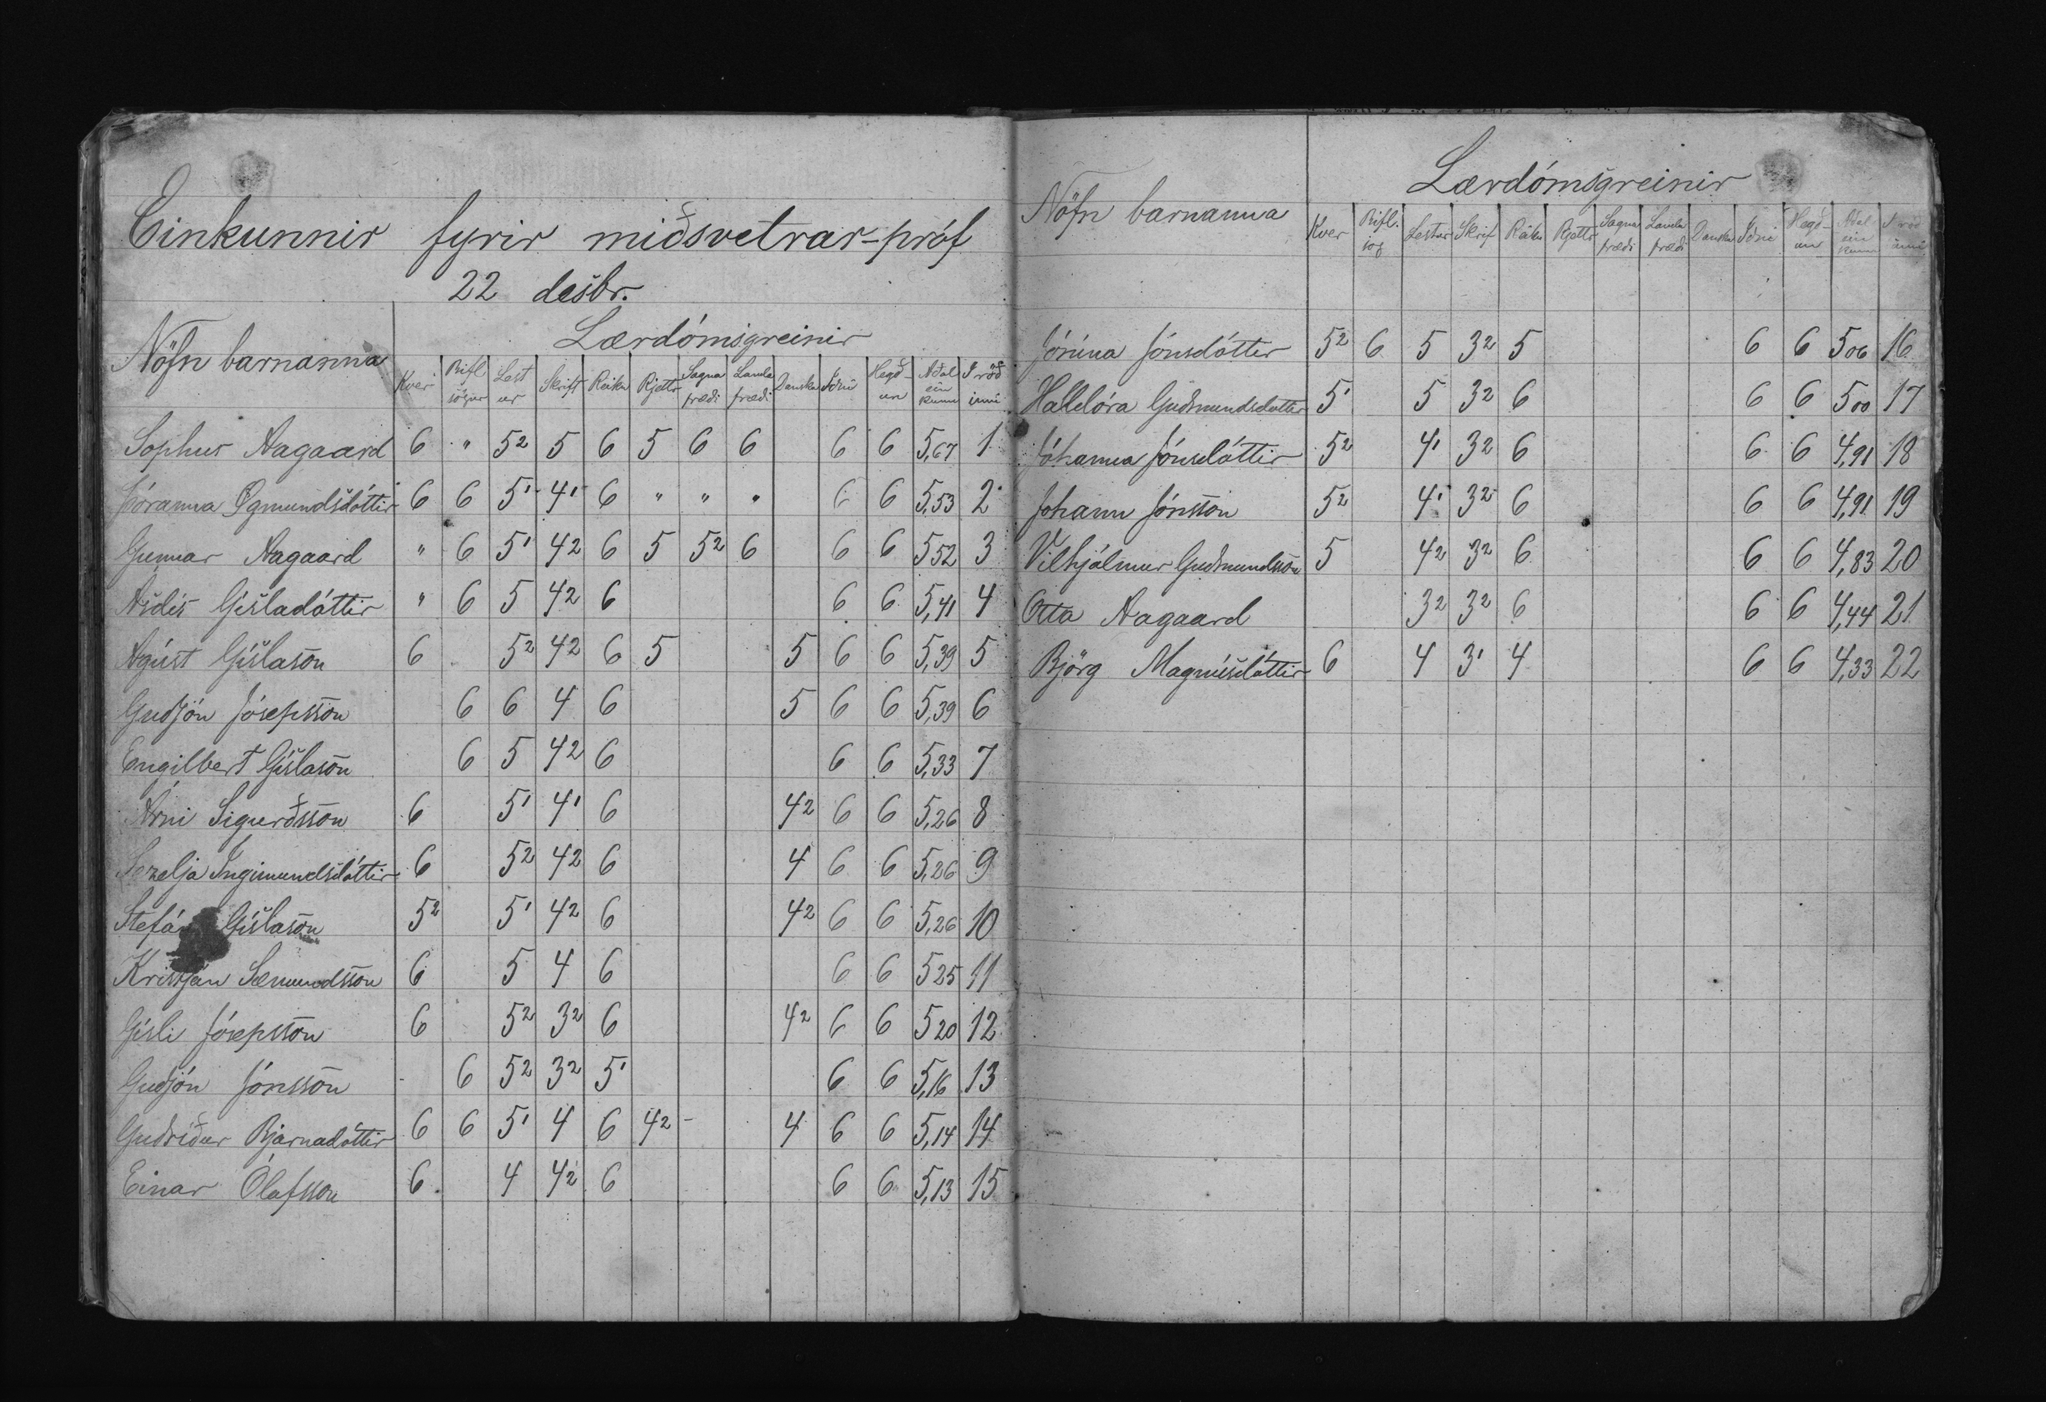 Einkunnir fyrir miðsvetrar-próf
22 desbr.
Nöfn barnanna Lærdómsgreinir
Kver Bifl sögur Lest ur Skrift Reikn Rjettr Sagna fræði Landa fræði Danska Iðni Hegð-un Aðal ein kunn I röð inni
Sophus Aagaard 6 " 5² 5 6 5 6 6 6 6 5,67 1
Þóranna Ögmundsdóttir 6 6 5¹ 4¹ 6 " " " 6 6 5,53 2
Gunnar Aagaard " 6 5¹ 4² 6 5 5² 6 6 6 5,52 3
Asdís Gísladóttir " 6 5 4² 6 6 6 5,41 4
Agúst Gíslason 6 5² 4² 6 5 5 6 6 5,39 5
Guðjón Jósepsson 6 6 4 6 5 6 6 5,39 6
Engilbert Gíslason 6 5 4² 6 6 6 5,33 7
Árni Sigurðsson 6 5¹ 4¹ 6 4² 6 6 5,26 8
Ingimundsdóttir 6 5² 4² 6 4 6 6 5,26 9
Stefán Gíslason 5² 5¹ 4² 6 4² 6 6 5,26 10
Kristján Sæmundsson 6 5 4 6 6 6 5 25 11
Gísli Jósepsson 6 5² 3² 6 4² 6 6 5 20 12
Guðjón Jónsson 6 5² 3² 5¹ 6 6 5,16 13
Guðríður Bjarnadóttir 6 6 5¹ 4 6 4² - 4 6 6 5,14 14
Einar Ólafsson 6 4 4² 6 6 6 5,13 15
Nöfn barnanna Lærdómsgreinir
Kver Bifl. sög Lestur Skrift Reikn Rjettr Sagna fræði Landa fræði Danska Iðni Hegð-un Aðal ein kunn I röð inni
Jónína Jónsdóttir 5² 6 5 3² 5 6 6 5 06 16
Halldóra Guðmundsdóttir 5¹ 5 3² 6 6 6 5 00 17
Jóhanna Jónsdóttir 5² 4¹ 3² 6 6 6 4,91 18
Jóhann Jónsson 5² 4¹ 3² 6 6 6 4,91 19
Vilhjálmur Guðmundsson 5 4² 3² 6 6 6 4,83 20
Otto Aagaard 3² 3² 6 6 6 4,44 21
Björg Magnúsdóttir 6 4 3¹ 4 6 6 4,33 22